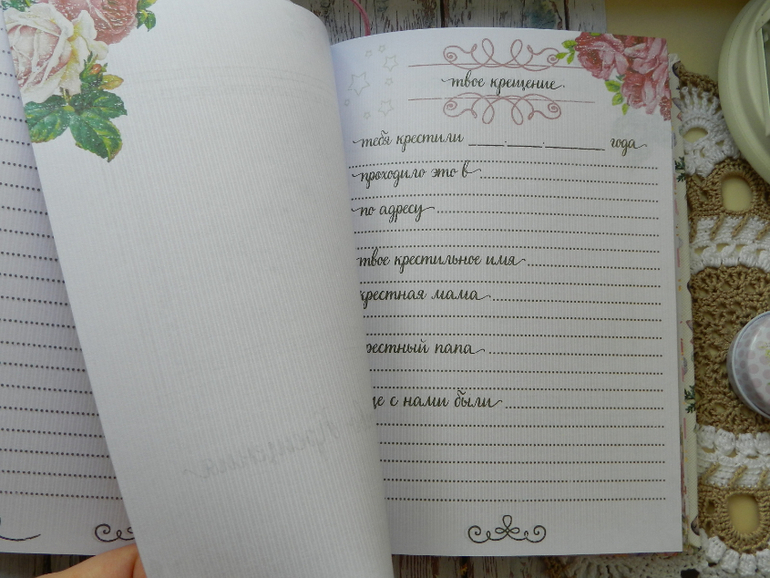 твое крещение
тебя крестили ____.____.______ года
проходило это в
по адресу
твое крестильное имя
крестная мама
папа
с нами были